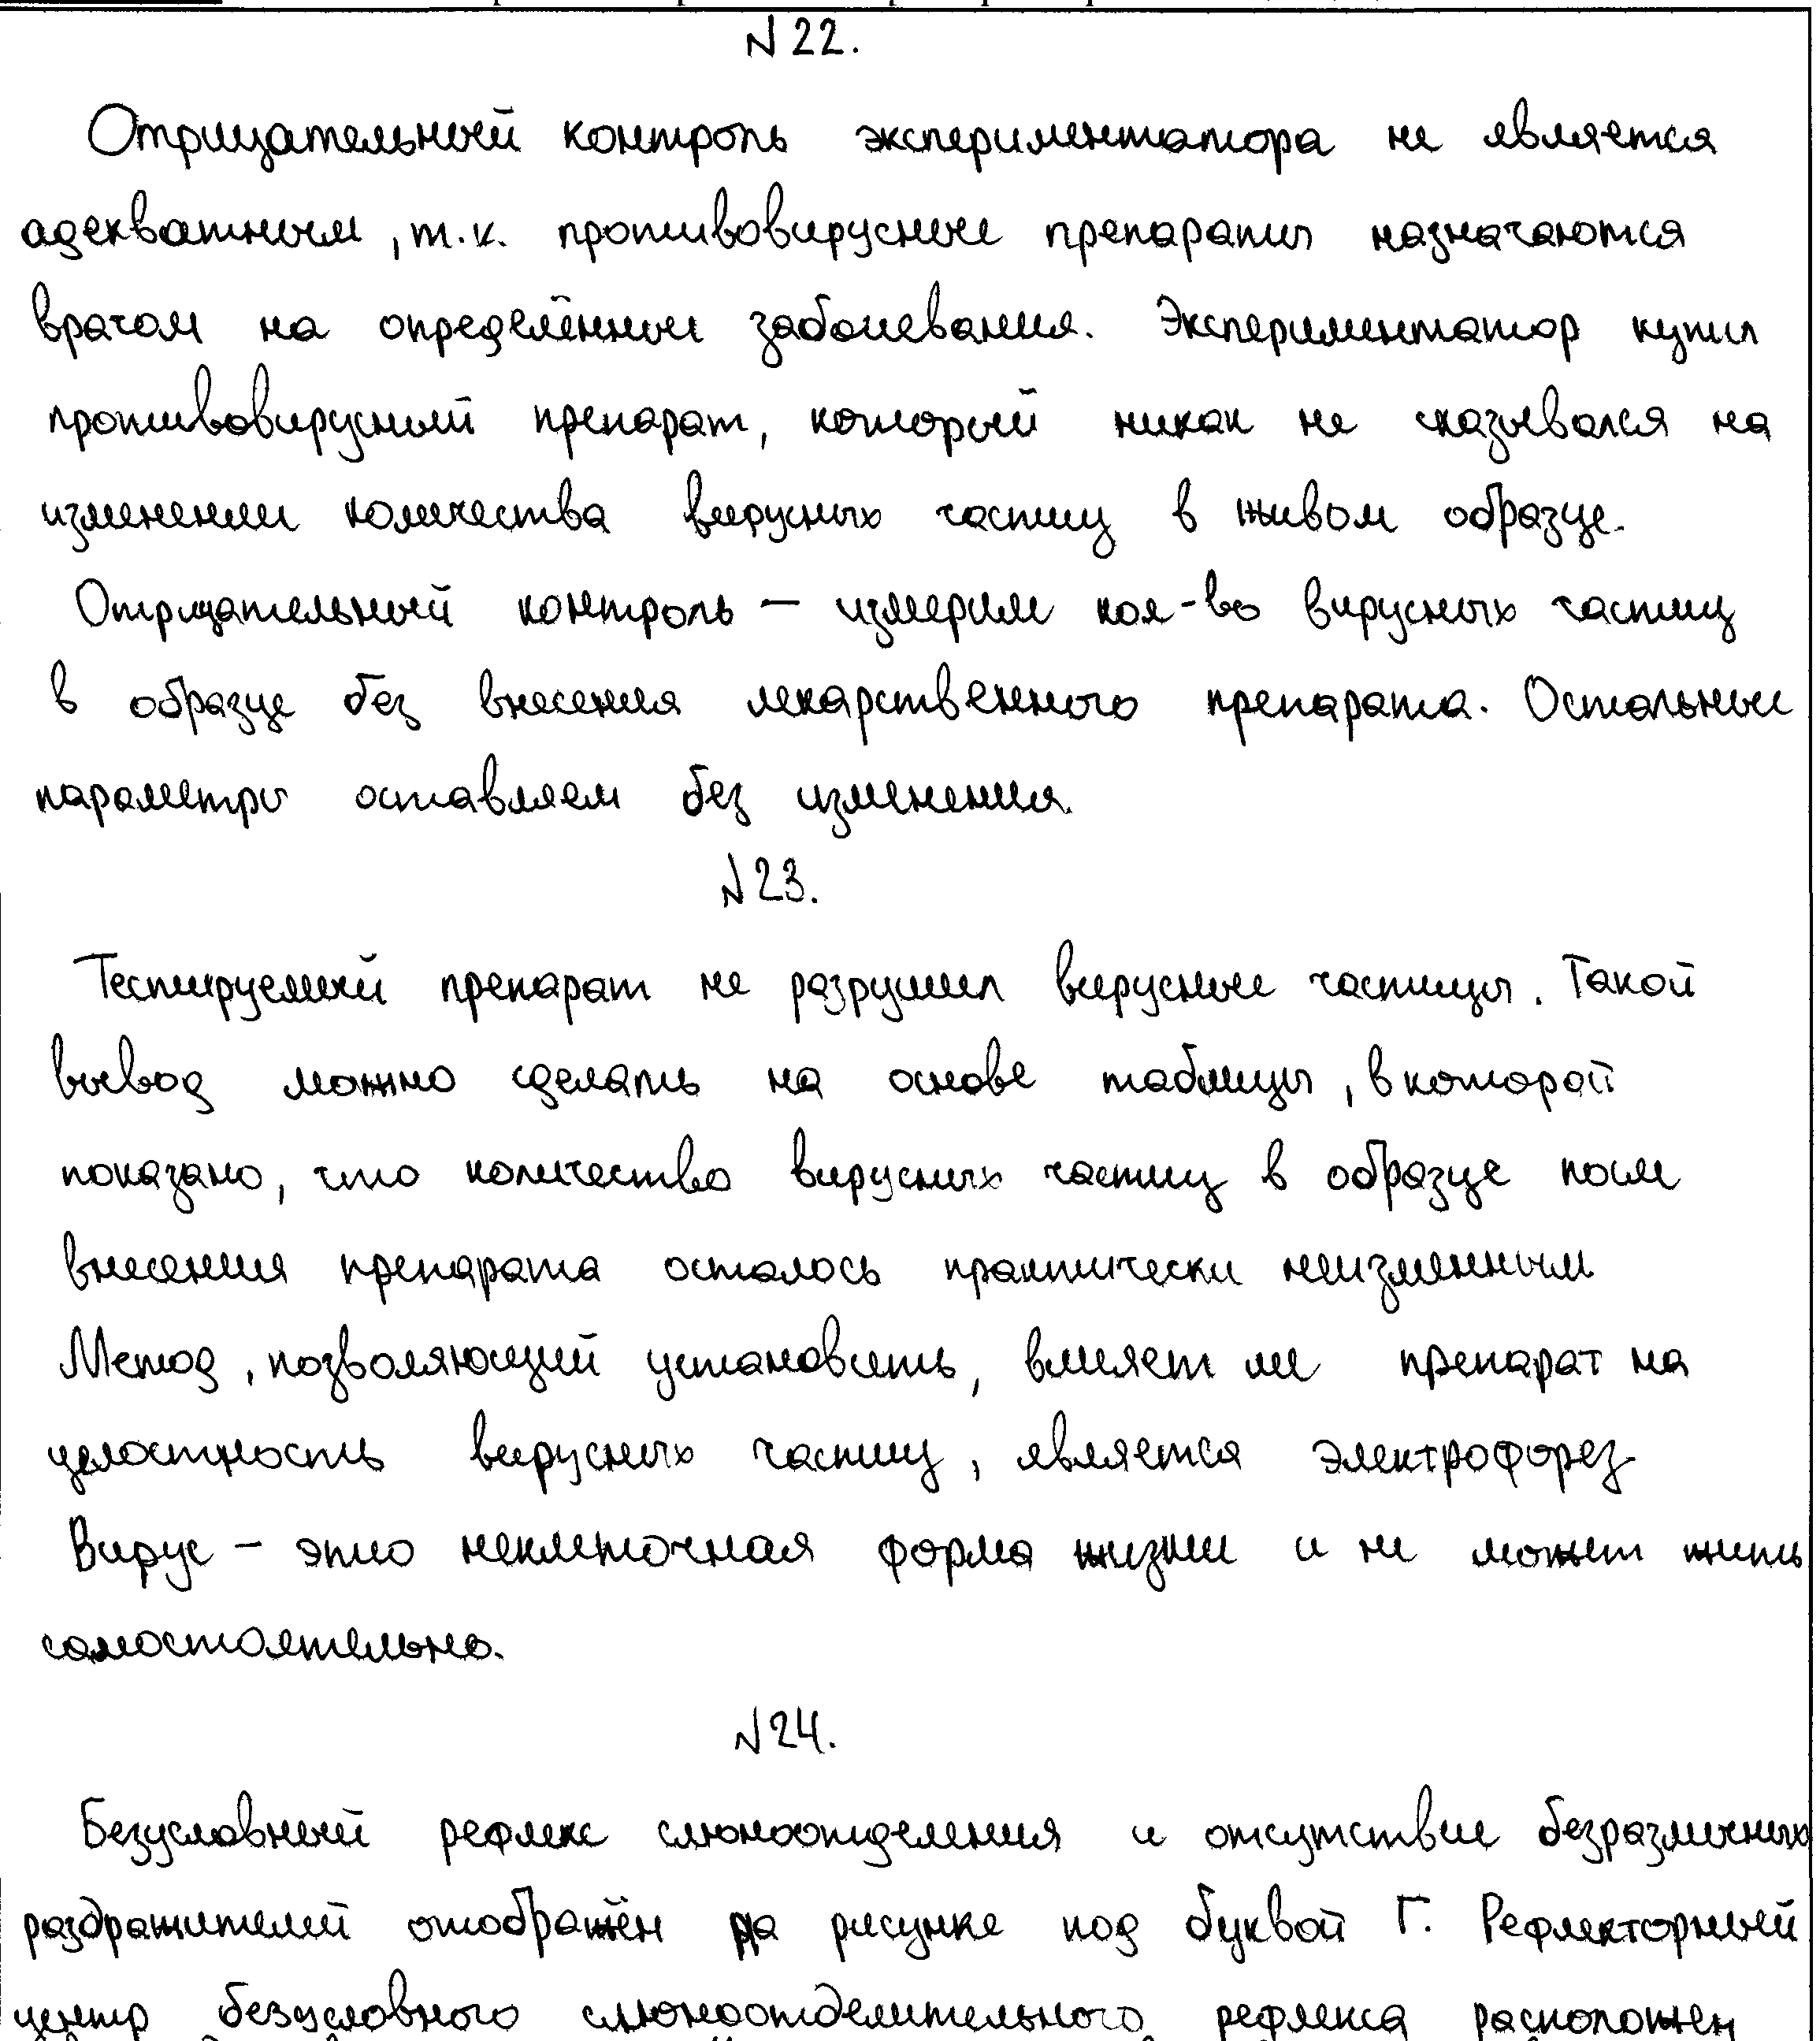 N 22.
Отрицательный контроль экспериментатора не является
адекватным, т.к. противовирусные препараты назначаются
врачом на определённые заболевания. Экспериментатор купил
противовирусный препарат, который никак не сказывался на
изменении количества вирусных частиц в живом образце.
Отрицательный контроль — измерим кол-во вирусных частиц
в образце без внесения лекарственного препарата. Остальные
параметры оставляем без изменения.
N 23.
Тестируемый препарат не разрушил вирусные частицы. Такой
вывод можно сделать на основе таблицы, в которой
показано, что количество вирусных частиц в образце после
внесения препарата осталось практически неизменным
Метод, позволяющий установить, влияет ли препарат на
целостность вирусных частиц, является электрофорез.
Вирус – это неклеточная форма жизни и не может жить
самостоятельно.
N 24.
Безусловный рефлекс слюноотделения и отсутствие безразличных
раздражителей отображён на рисунке под буквой Г. Рефлекторный
центр безусловного слюноотделительного рефлекса расположен